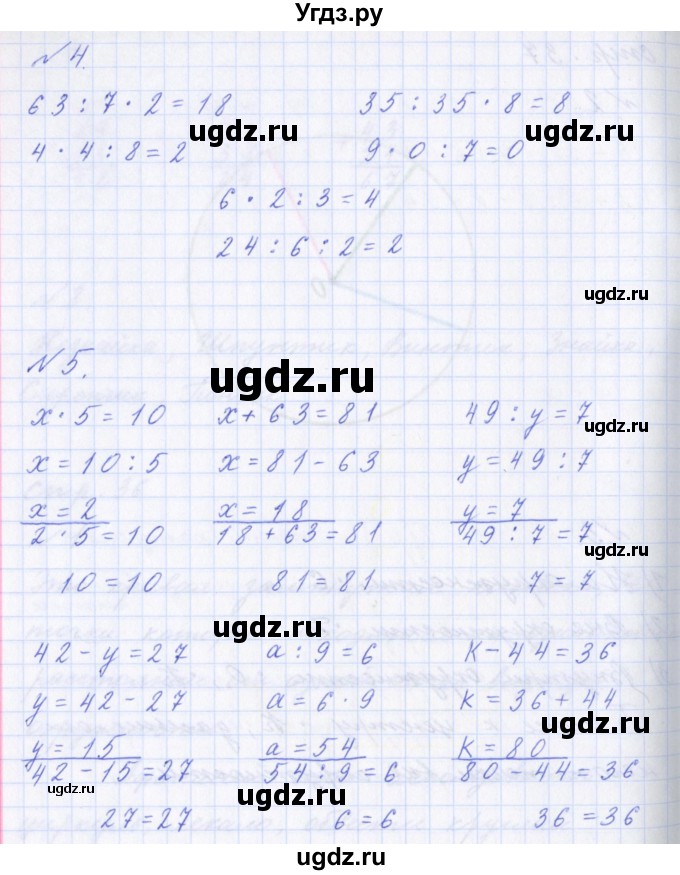 Угдз.ру
№ 4.
63 : 7 · 2 = 18    35 : 35 · 8 = 8
ugdz.ru
4 · 4 : 8 = 2    9 · 0 : 7 = 0
6 · 2 : 3 = 4
24 : 6 : 2 = 2
ugdz.ru
№ 5.
ugdz.ru
x · 5 = 10    x + 63 = 81    49 : y = 7
ugdz.ru
x = 10 : 5    x = 81 - 63    y = 49 : 7
x = 2    x = 18    y = 7
2 · 5 = 10    18 + 63 = 81    49 : 7 = 7
10 = 10    81 = 81    7 = 7
ugdz.ru
42 - y = 27    a : 9 = 6    к - 44 = 36
y = 42 - 27    a = 6 · 9    к = 36 + 44
ugdz.ru
y = 15    a = 54    к = 80
42 - 15 = 27    54 : 9 = 6    80 - 44 = 36
ugdz.ru    ugdz.ru
27 = 27    6 = 6    36 = 36
ugdz.ru